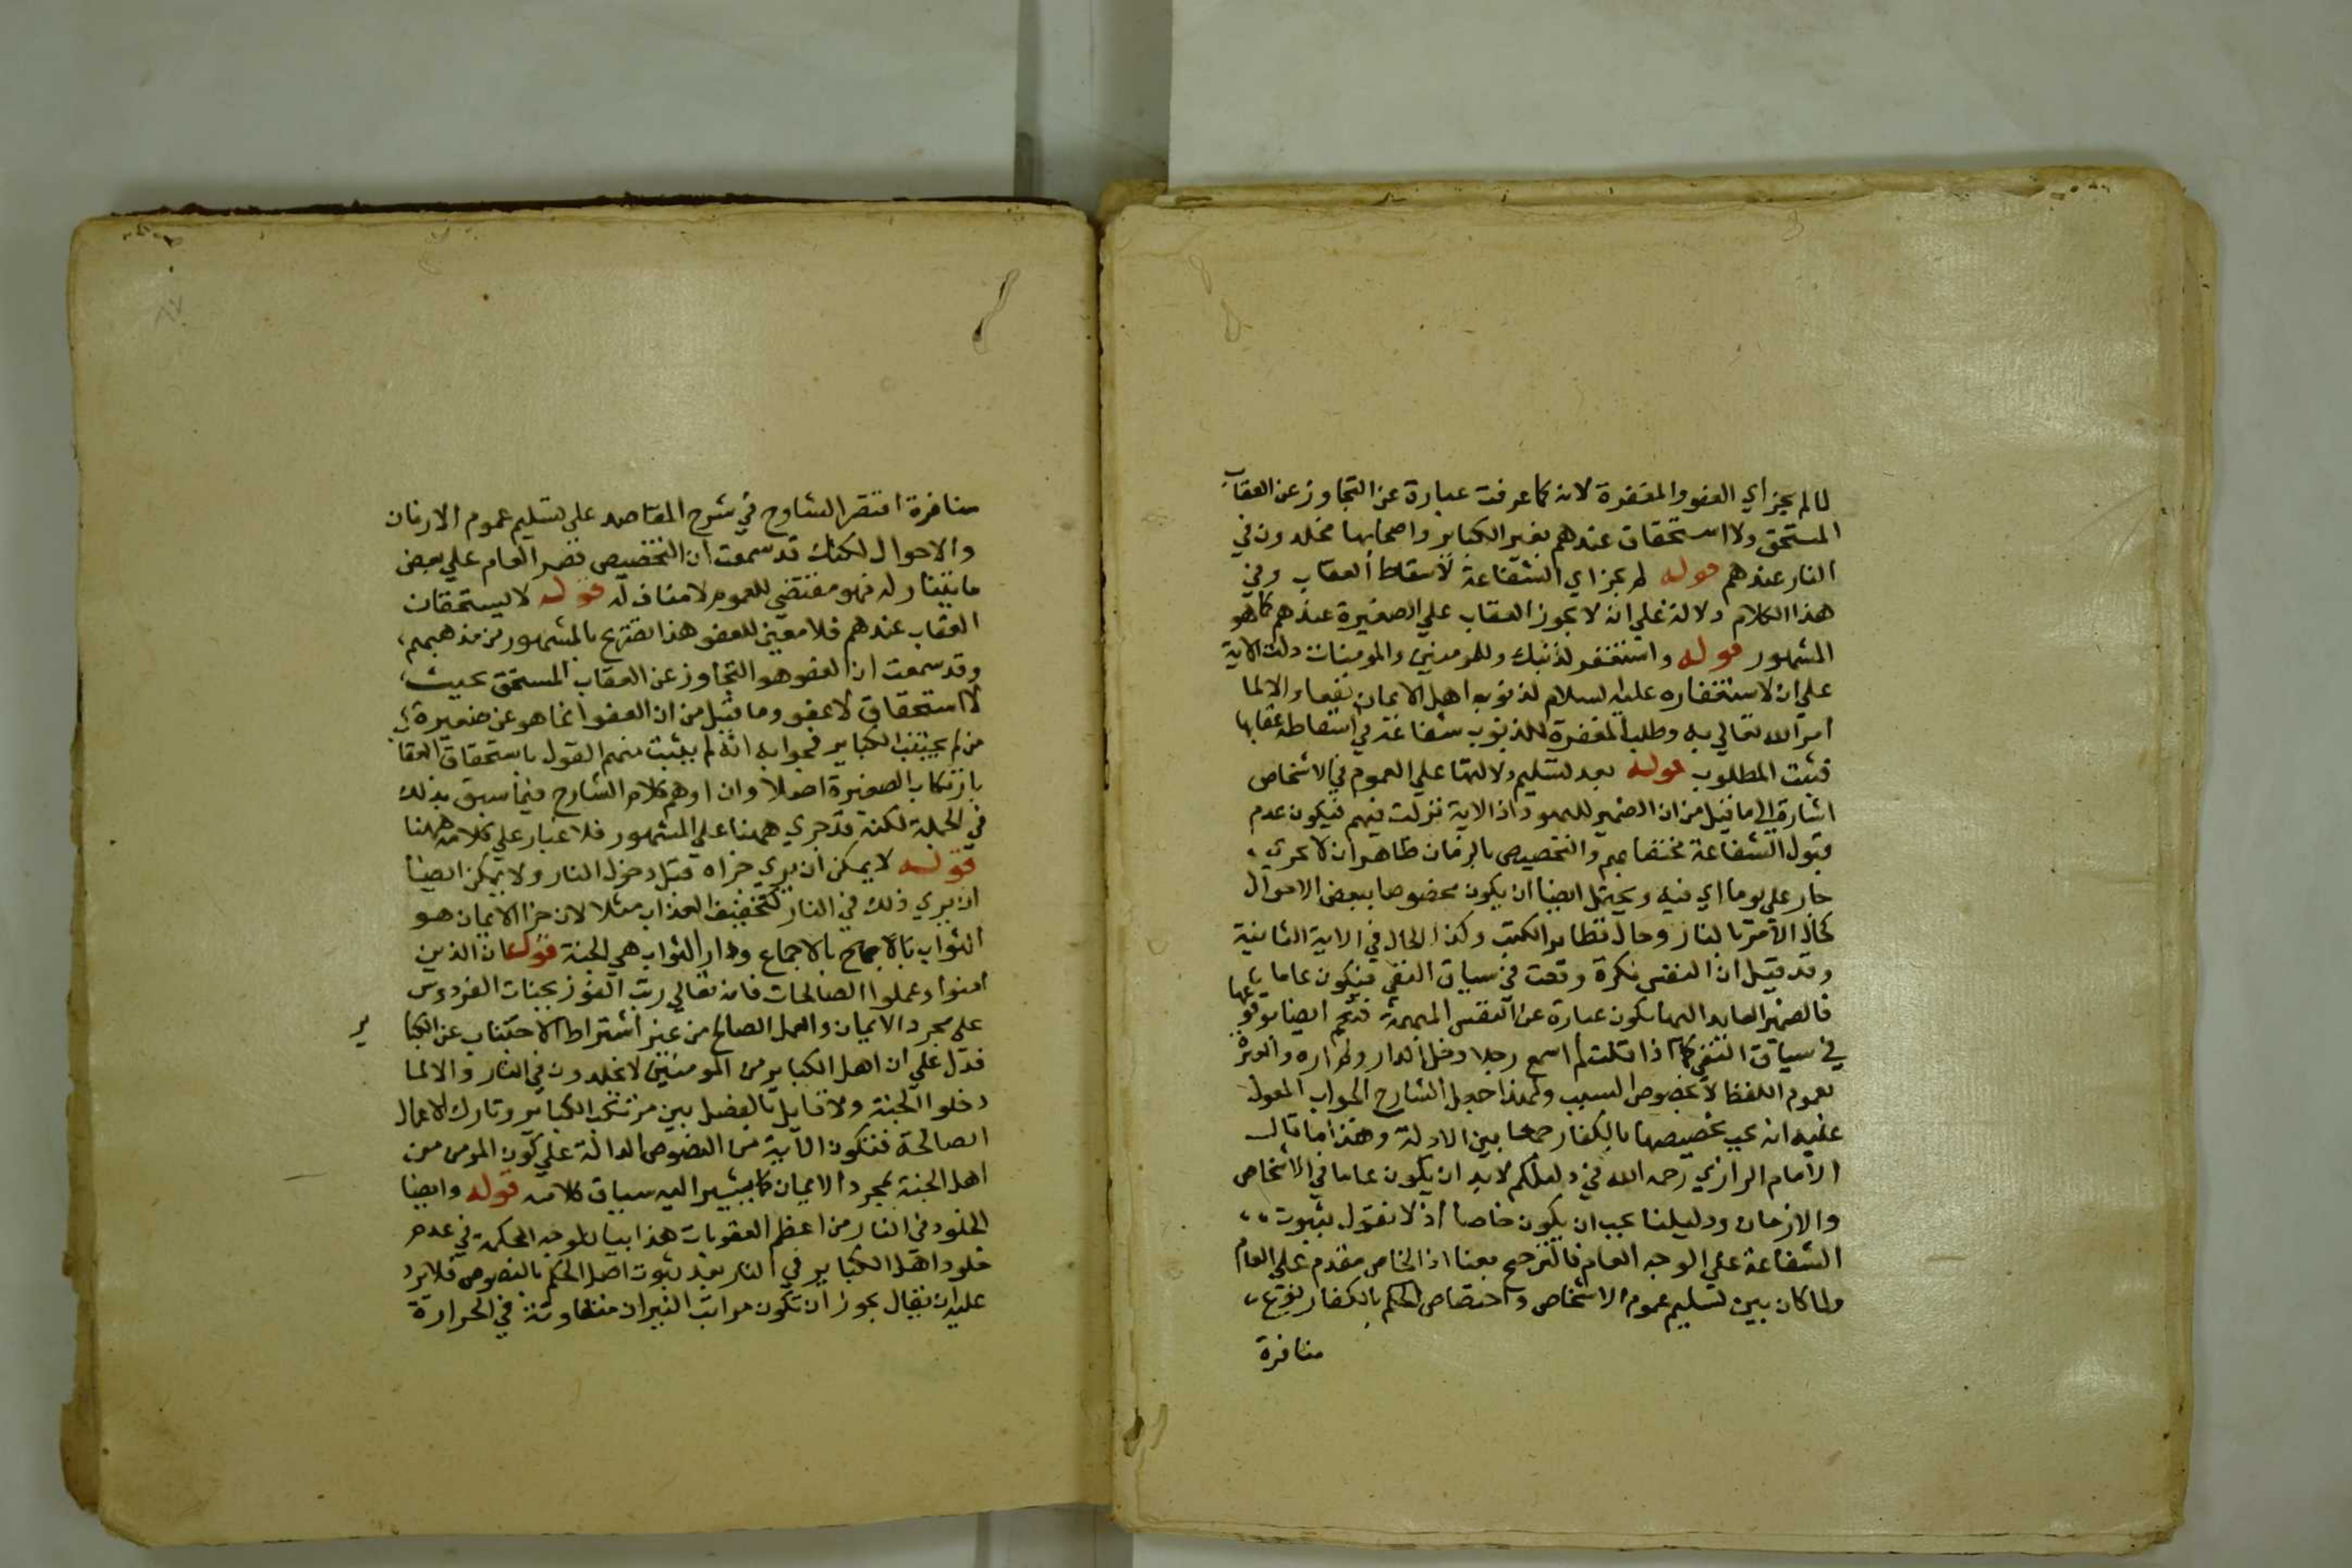 لما لم يجز اي العفو والمغفرة لانه كما عرفت عبارة عن التجاوز عن العقاب
المستحق ولا استحقاق عندهم بغير الكباير واصحابها مخلدون في
النار عندهم قوله لم يجز اي الشفاعة لاسقاط العقاب وفي
هذا الكلام دلالة علي انه لا يجوز العقاب علي الصغيرة عندهم كما هو
المشهور قوله واستغفر لذنبك وللمومنين والمومنات دلت الاية
علي ان لاستغفاره عليه لسلام لذنوب اهل الايمان نفعا والا لما
امر الله تعالي به وطلب المغفرة للذنوب شفاعة في اسقاط عقابها
فثبت المطلوب قوله بعد تسليم دلالتها علي العموم في الاشخاص
اشارة الي ما قيل من ان الضمير لليهود اذ الاية نزلت فيهم فيكون عدم
قبول الشفاعة مختصا بهم والتخصيص بالزمان ظاهر ان لا يجري
جار علي يوما اي فيه ويحتمل ايضا ان يكون مخصوصا ببعض الاحوال
كحال الامر بالنار وحال تطاير الكتب وكذا الحال في الاية الثانية
وقد قيل ان النفس نكرة وقعت في سياق النفي فيكون عاما
فالضمير العايد اليها يكون عبارة عن النفس المبهمة فتعم ايضا بوقو
في سياق النفي كما اذا قلت لم اسمع رجلا دخل الدار ولم اره والعبرة
لعموم اللفظ لا بخصوص السبب ولهذا جعل الشارح الجواب المعول
عليه انه يجب تخصيصها بالكفار جمعا بين الادلة وهذا ما قال
الامام الرازي رحمه الله في دليلكم لابد ان يكون عاما في الاشخاص
والازمان ودليلنا يجب ان يكون خاصا اذ لا نقول بثبوت
الشفاعة علي الوجه العام فالترجيح معنا اذ الخاص مقدم علي العام
ولما كان بين تسليم عموم الاشخاص واختصاص الحكم بالكفار نوع
منافرة
منافرة اقتصر الشارح في شرح المقاصد علي تسليم عموم الازمان
والاحوال لكنك قد سمعت ان التخصيص قصر العام علي بعض
ما يتناوله فهو مقتضي للعموم لا مناف له قوله لا يستحقان
العقاب عندهم فلا معني للعفو هذا تصريح بالمشهور من مذهبهم
وقد سمعت ان العفو هو التجاوز عن العقاب المستحق بحيث
لا استحقاق لا عفو وما قيل من ان العفو انما هو عن صغيرة
من لم يجتنب الكباير فجوابه انه لم يثبت منهم القول باستحقاق العقا
بارتكاب الصغيرة اصلا وان اوهم كلام الشارح فيما سبق بذلك
في الجملة لكنه قد جري ههنا علي المشهور فلا غبار علي كلامه ههنا
قوله لا يمكن ان يري جزاه قبل دخول النار ولا يمكن ايضا
ان يري ذلك في النار لتخفيف العذاب مثلا لان جزا الايمان هو
الثواب بالاجماع بالاجماع ودار الثواب هي الجنة قوله ان الذين
امنوا وعملوا الصالحات فانه تعالي رتب الفوز بجنات الفردوس
علي مجرد الايمان والعمل الصالح من غير اشتراط الاجتناب عن الكبا ير
فدل علي ان اهل الكباير من المومنين لا يخلدون في النار والا لما
دخلوا الجنة ولا قايل بالفصل بين مرتكب الكباير وتارك الاعمال
الصالحة فتكون الاية من النصوص الدالة علي كون المومن من
اهل الجنة بمجرد الايمان كما يشير اليه سياق كلامه قوله وايضا
الخلود في النار من اعظم العقوبات هذا بيان لوجه الحكمة في عدم
خلود اهل الكباير في النار بعد ثبوت اصل الحكم بالنصوص فلا يرد
عليه ان يقال يجوز ان تكون مراتب النيران متفاوتة في الحرارة